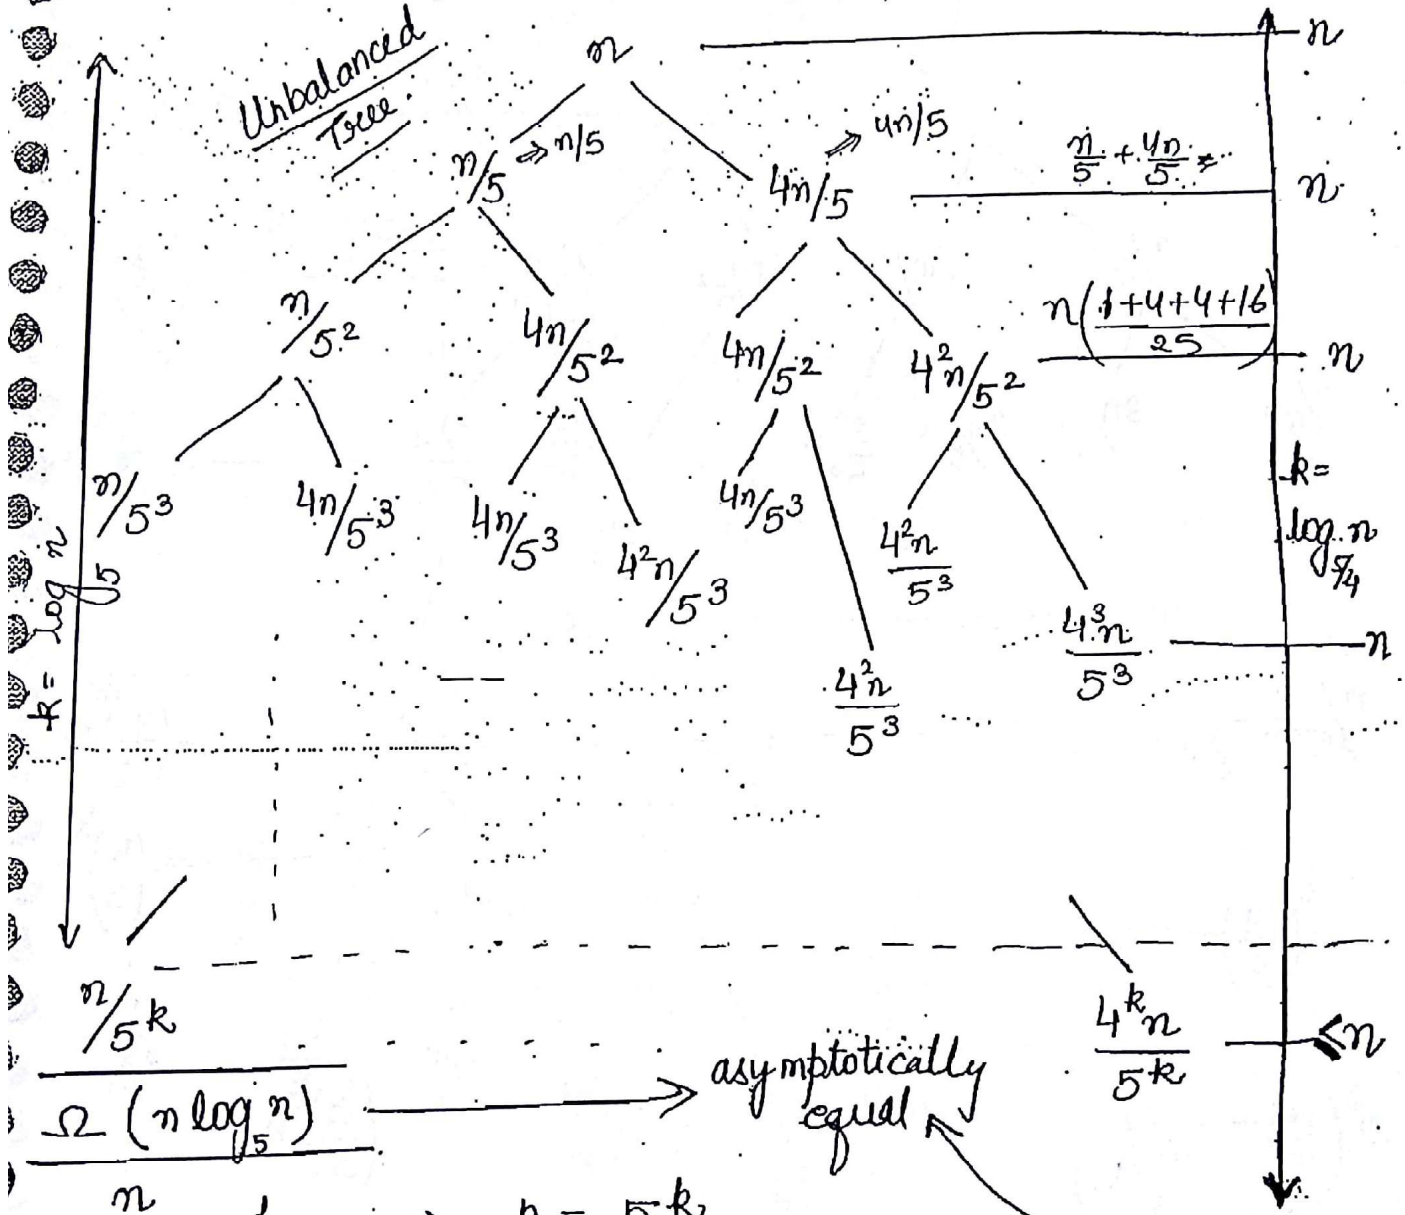 Unbalanced
Tree.
n — n
n/5 ⇒ n/5
4n/5 ⇒ 4n/5
n/5 + 4n/5 = n
n/5²
4n/5²
4n/5²
4²n/5²
n(1+4+4+16 / 25) n
n/5³
4n/5³
4n/5³
4²n/5³
4n/5³
4²n/5³
4²n/5³
4³n/5³
n
k = log₅ n
k =
log n
5/4
n/5ᵏ
4ᵏn/5ᵏ
≤n
Ω (n log₅ n) → asymptotically
equal
n
n = 5ᵏ